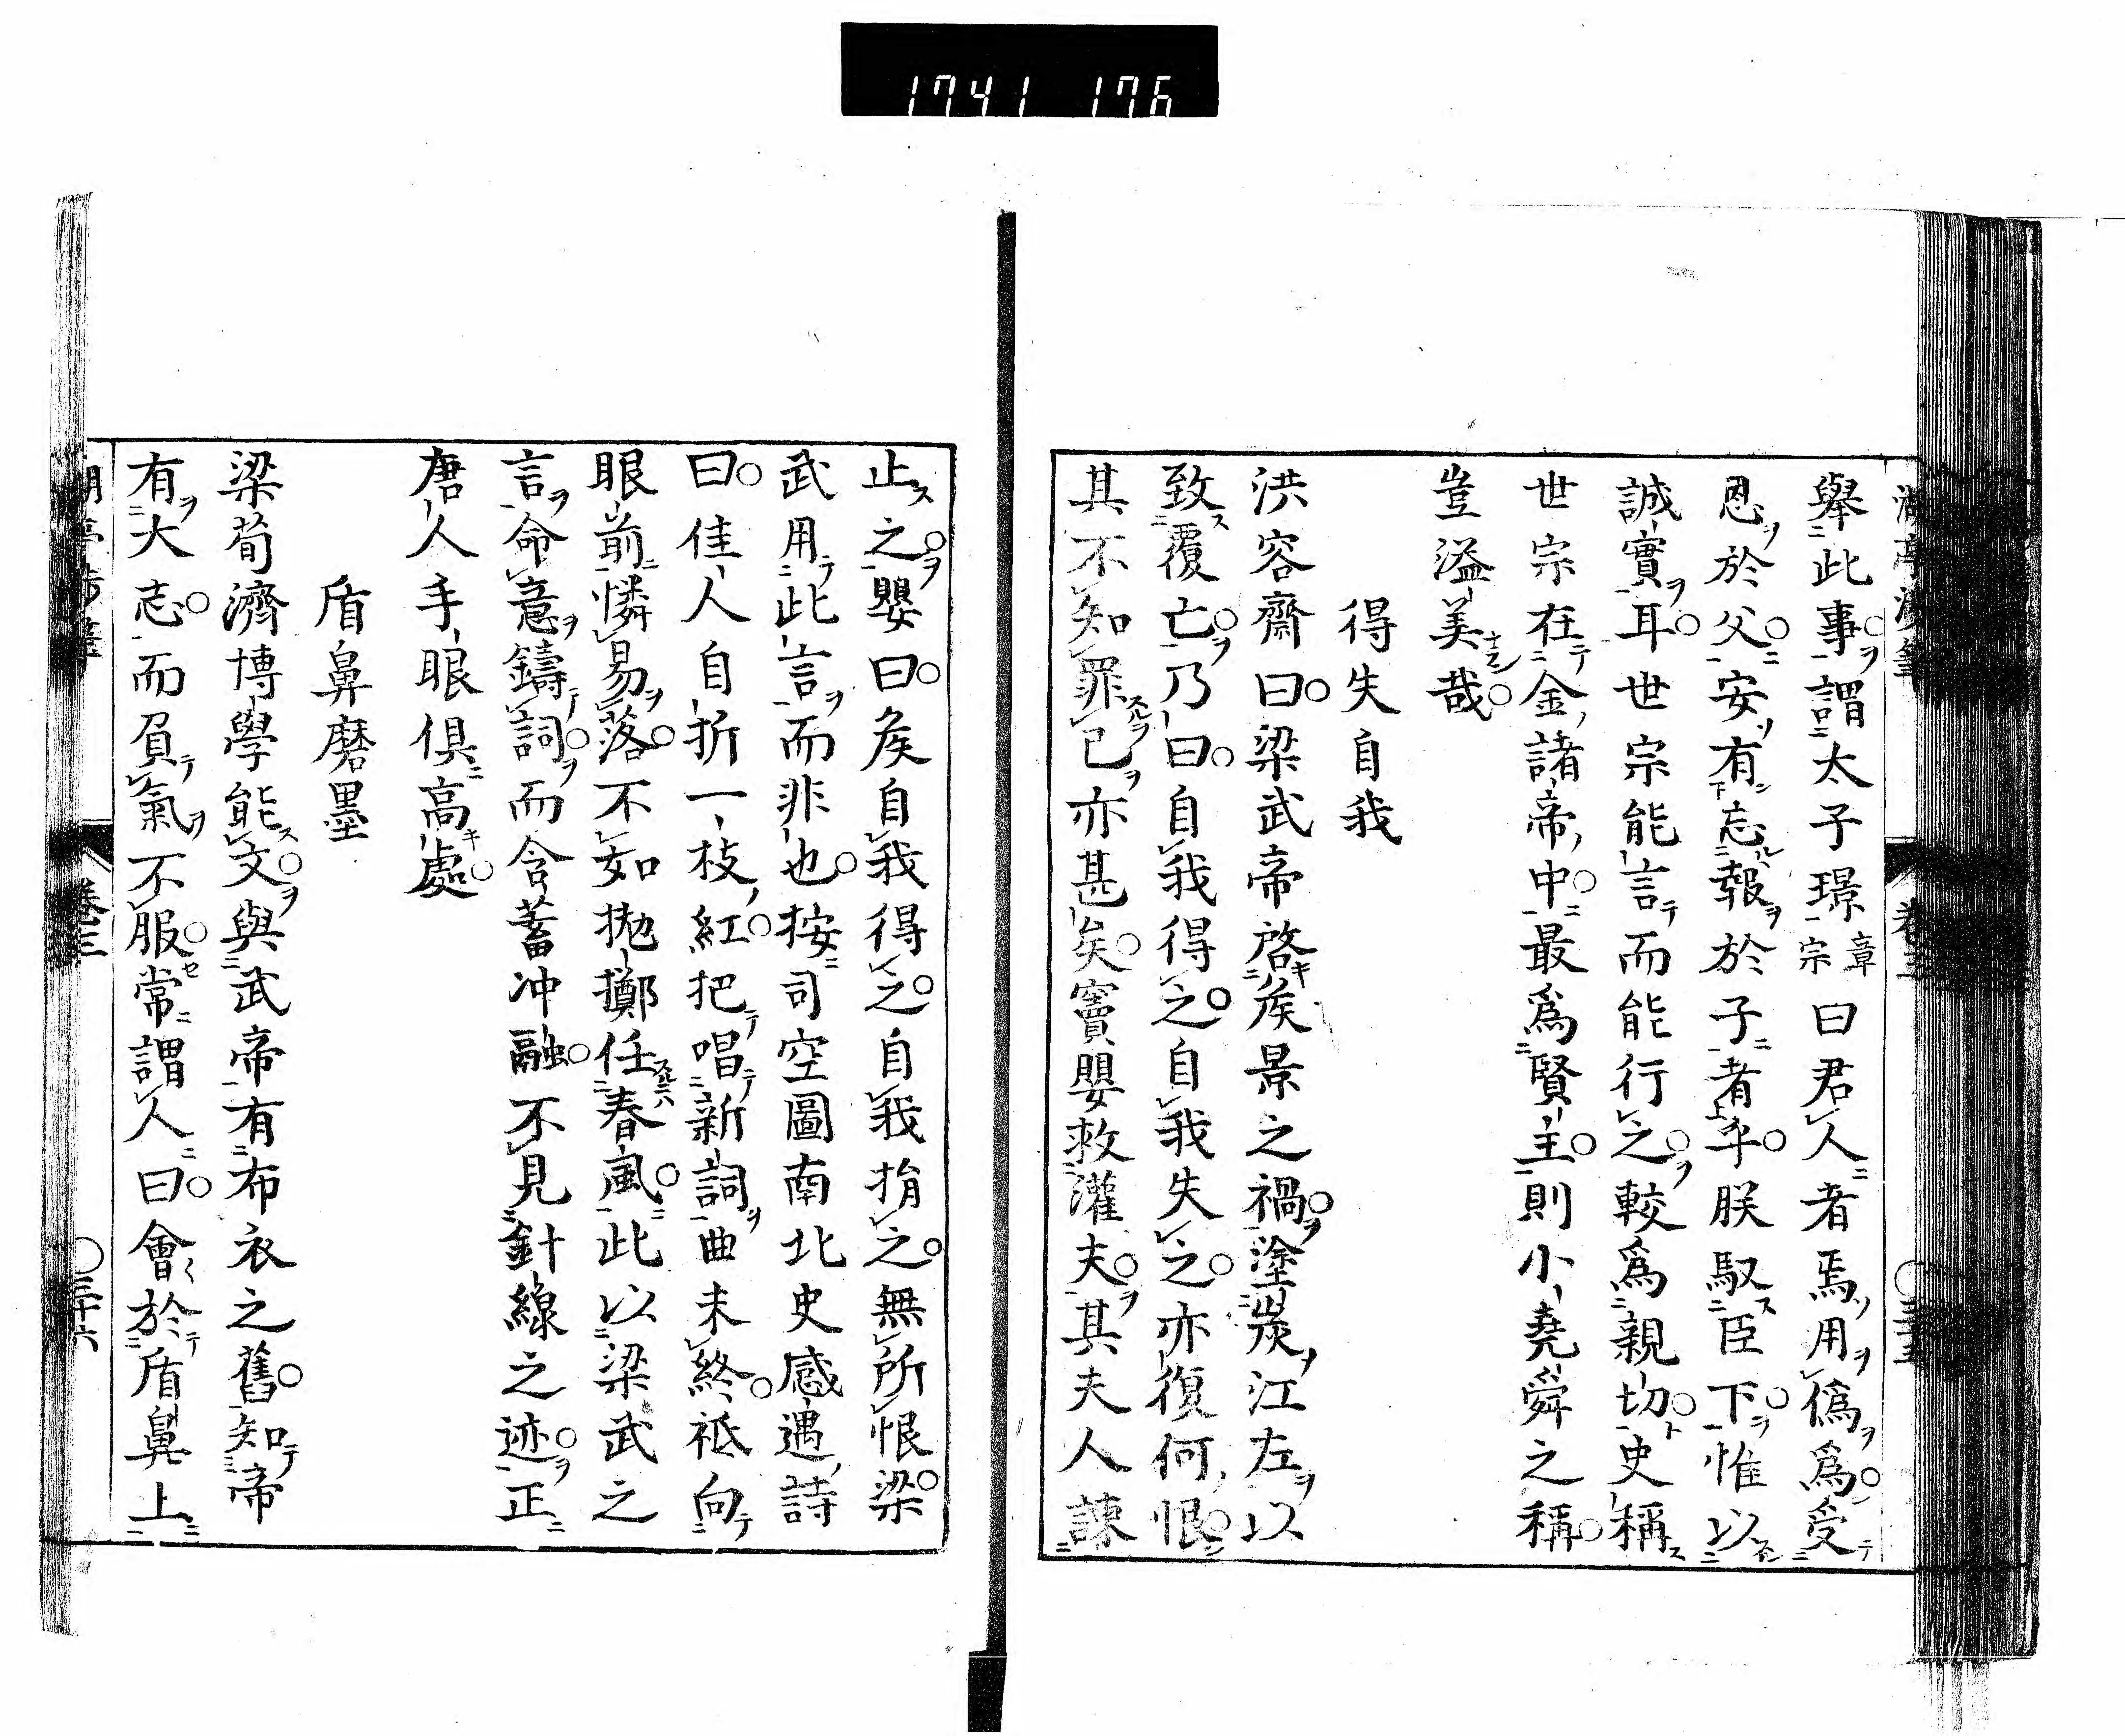 1741 176
舉此事謂太子璟章宗曰君人者焉用僞爲受
恩於父安有忘報於子者乎朕馭臣下惟以
誠實耳世宗能言而能行之較爲親切史稱
世宗在金諸帝中最爲賢主則小堯舜之稱
豈溢美哉
得失自我
洪容齋曰梁武帝啓矦景之禍塗炭江左以
致覆亡乃曰自我得之自我失之亦復何恨
其不知罪己亦甚矣竇嬰救灌夫其夫人諫
止之嬰曰矦自我得之自我捐之無所恨梁
武用此言而非也按司空圖南北史感遇詩
曰佳人自折一枝紅把唱新詞曲未終袛向
眼前憐易落不如抛擲任春風此以梁武之
言命意鑄詞而含蓄冲融不見針線之迹正
唐人手眼俱高處
盾鼻磨墨
梁荀濟博學能文與武帝有布衣之舊知帝
有大志而負氣不服常謂人曰會於盾鼻上
卷三
三十六